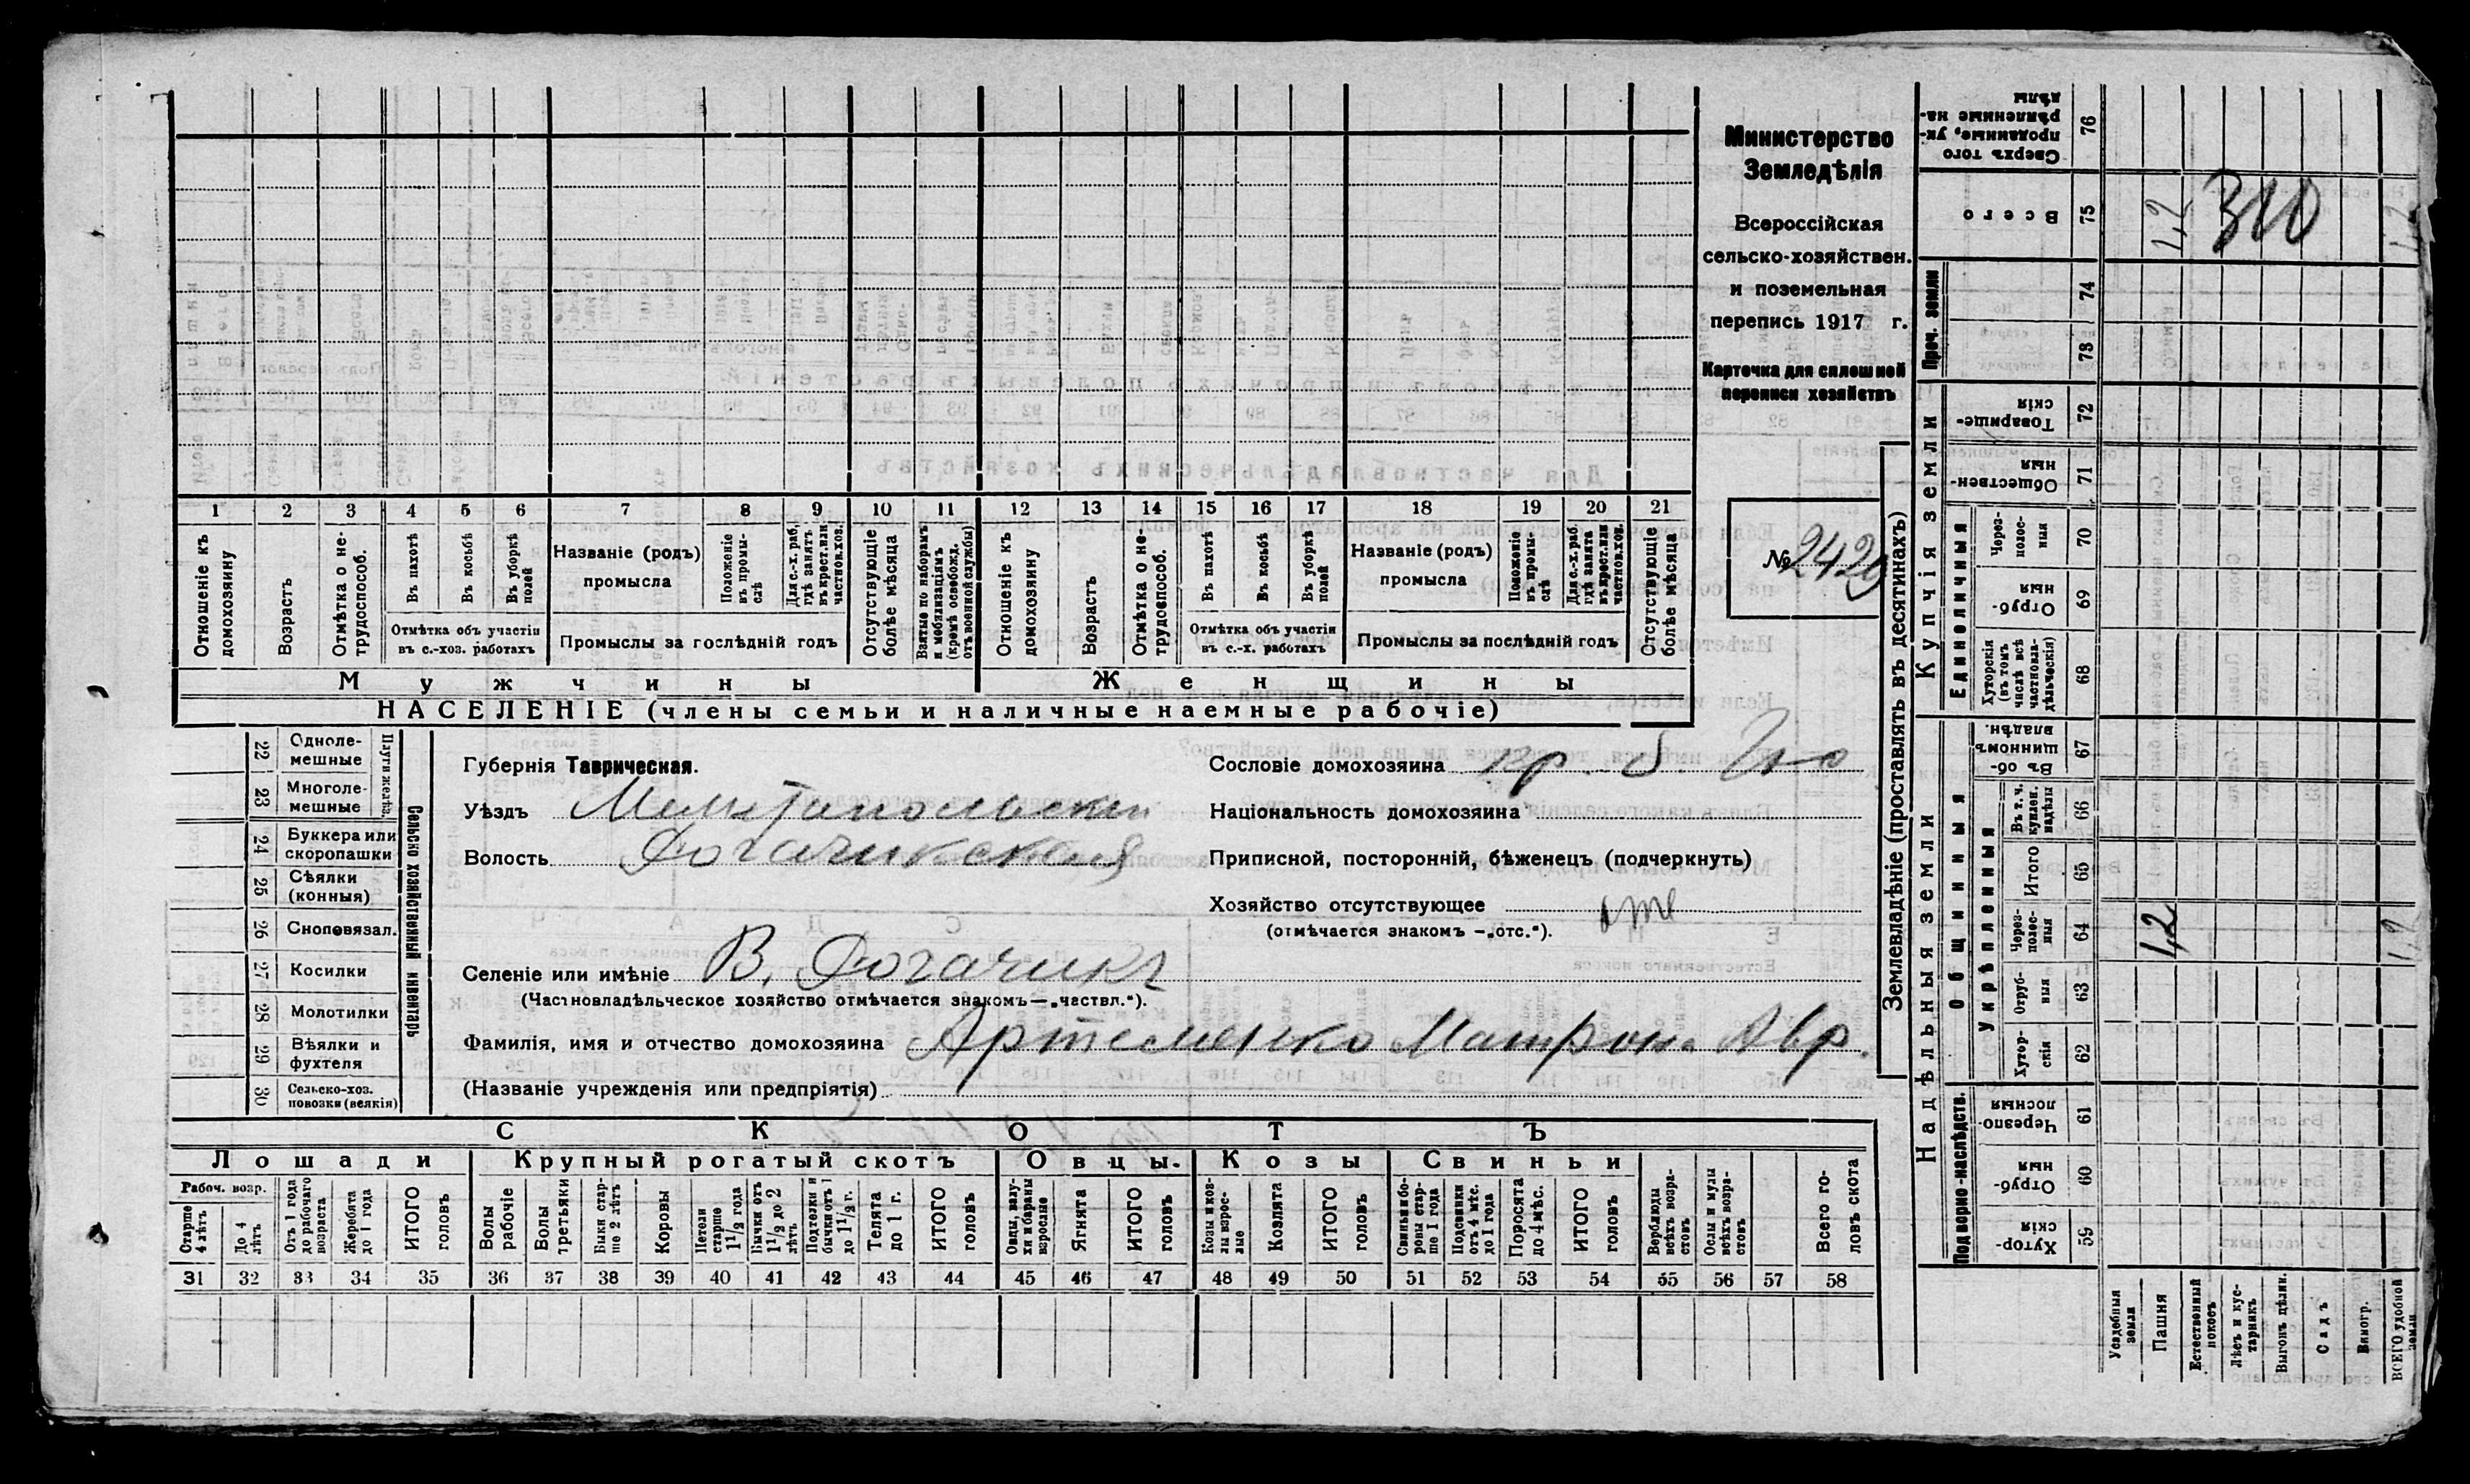 Министерство
Земледѣлія
Всероссійская
сельско-хозяйствен.
и поземельная
перепись 1917 г.
Карточка для сплошной
переписи хозяйствъ
№ 2429
1 2 3 4 5 6 7 8 9 10 11 12 13 14 15 16 17 18 19 20 21
Отношеніе къ домохозяину
Возрастъ
Отмѣтка о не-трудоспособ.
Въ пахотѣ
Въ косьбѣ
Въ уборкѣ полей
Отмѣтка объ участіи въ с.-хоз. работахъ
Названіе (родъ) промысла
Положеніе въ промы-слѣ
Для с.-х. раб, гдѣ занятъ въ крест. или частнов. хоз.
Промыслы за гослѣдній годъ
Отсутствующіе болѣе мѣсяца
Взятые по наборамъ и мобилизаціямъ (кромѣ освобожд. отъ военной службы)
Отношеніе къ домохозяину
Возрастъ
Отмѣтка о не-трудоспособ.
Въ пахотѣ
Въ косьбѣ
Въ уборкѣ полей
Отмѣтка объ участіи въ с.-х. работахъ
Названіе (родъ) промысла
Положеніе въ промы-слѣ
Для с.-х. раб. гдѣ занята въ крест. или частнов. хоз.
Промыслы за послѣдній годъ
Отсутствующіе болѣе мѣсяца
Мужчины
Женщины
НАСЕЛЕНІЕ (члены семьи и наличные наемные рабочіе)
22 Одноле-мешные
23 Многоле-мешные
Плуги желѣз.
24 Буккера или скоропашки
25 Сѣялки (конныя)
26 Сноповязал.
27 Косилки
28 Молотилки
29 Вѣялки и фухтеля
30 Сельско-хоз. повозки (всякія)
Сельско хозяйственный инвентарь
Губернія Таврическая.
Уѣздъ Мелитопольскій
Волость Рогачикская
Селеніе или имѣніе В. Рогачикъ
(Частновладѣльческое хозяйство отмѣчается знакомъ — „частвл.“).
Фамилія, имя и отчество домохозяина Артеменко Матрона Авр.
(Названіе учрежденія или предпріятія)
Сословіе домохозяина кр.
Національность домохозяина
Приписной, посторонній, бѣженецъ (подчеркнуть)
Хозяйство отсутствующее отс
(отмѣчается знакомъ — „отс.“).
СКОТЪ
Лошади
Крупный рогатый скотъ
Овцы.
Козы
Свиньи
Рабоч. возр.
Старше 4 лѣтъ
До 4 лѣтъ
Отъ 1 года до рабочаго возраста
Жеребята до 1 года
ИТОГО головъ
Волы рабочіе
Волы третьяки
Быки стар-ше 2 лѣтъ
Коровы
Нетели старше 1½ года
Бычки отъ 1½ до 2 лѣтъ
Подтелки и бычки отъ 1 до 1½ г.
Телята до 1 г.
ИТОГО головъ
Овцы, валу-хи и бараны взрослые
Ягнята
ИТОГО головъ
Козы и коз-лы взрос-лые
Козлята
ИТОГО головъ
Свиньи и бо-ровы стар-ше 1 года
Подсвинки отъ 4 мѣс. до 1 года
Поросята до 4 мѣс.
ИТОГО головъ
Верблюды всѣхъ возра-стовъ
Ослы и мулы всѣхъ возра-стовъ
Всего го-ловъ скота
31 32 33 34 35 36 37 38 39 40 41 42 43 44 45 46 47 48 49 50 51 52 53 54 55 56 57 58
Землевладѣніе (проставлять въ десятинахъ)
Купчія земли
Надѣльныя земли
Сверхъ того проданные, ук-рѣпленные на-дѣлы 76
Всего 75 4,2 310
Проч. земли 74 73
Товарище-скія 72
Обществен-ныя 71
Единоличныя
Через-полос-ныя 70
Отруб-ныя 69
Хуторскія (въ томъ числѣ всѣ частновла-дѣльческія) 68
Общинныя
Въ об-щинномъ владѣн. 67
Укрѣпленныя
Въ т. ч. куплен. надѣлы 66
Итого 65
Через-полос-ныя 64 4,2
Отруб-ныя 63
Хутор-скія 62
Подворно-наслѣдств.
Черезпо-лосныя 61
Отруб-ныя 60
Хутор-скія 59
Усадебныя земля
Пашня
Естественный покосъ
Лѣсъ и кус-тарникъ
Выгонъ цѣлин.
Садъ
Виногр.
ВСЕГО удобной земли